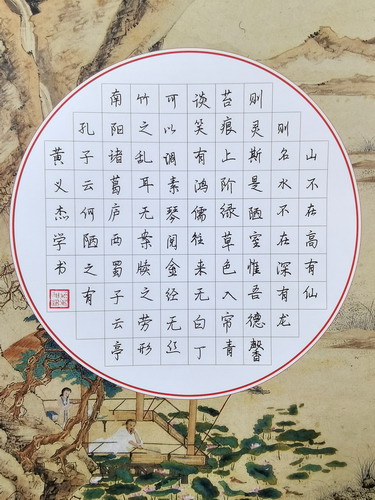 山不在高有仙
则名水不在深有龙
则灵斯是陋室惟吾德馨
苔痕上阶绿草色入帘青
谈笑有鸿儒往来无白丁
可以调素琴阅金经无丝
竹之乱耳无案牍之劳形
南阳诸葛庐西蜀子云亭
孔子云何陋之有
黄义杰学书